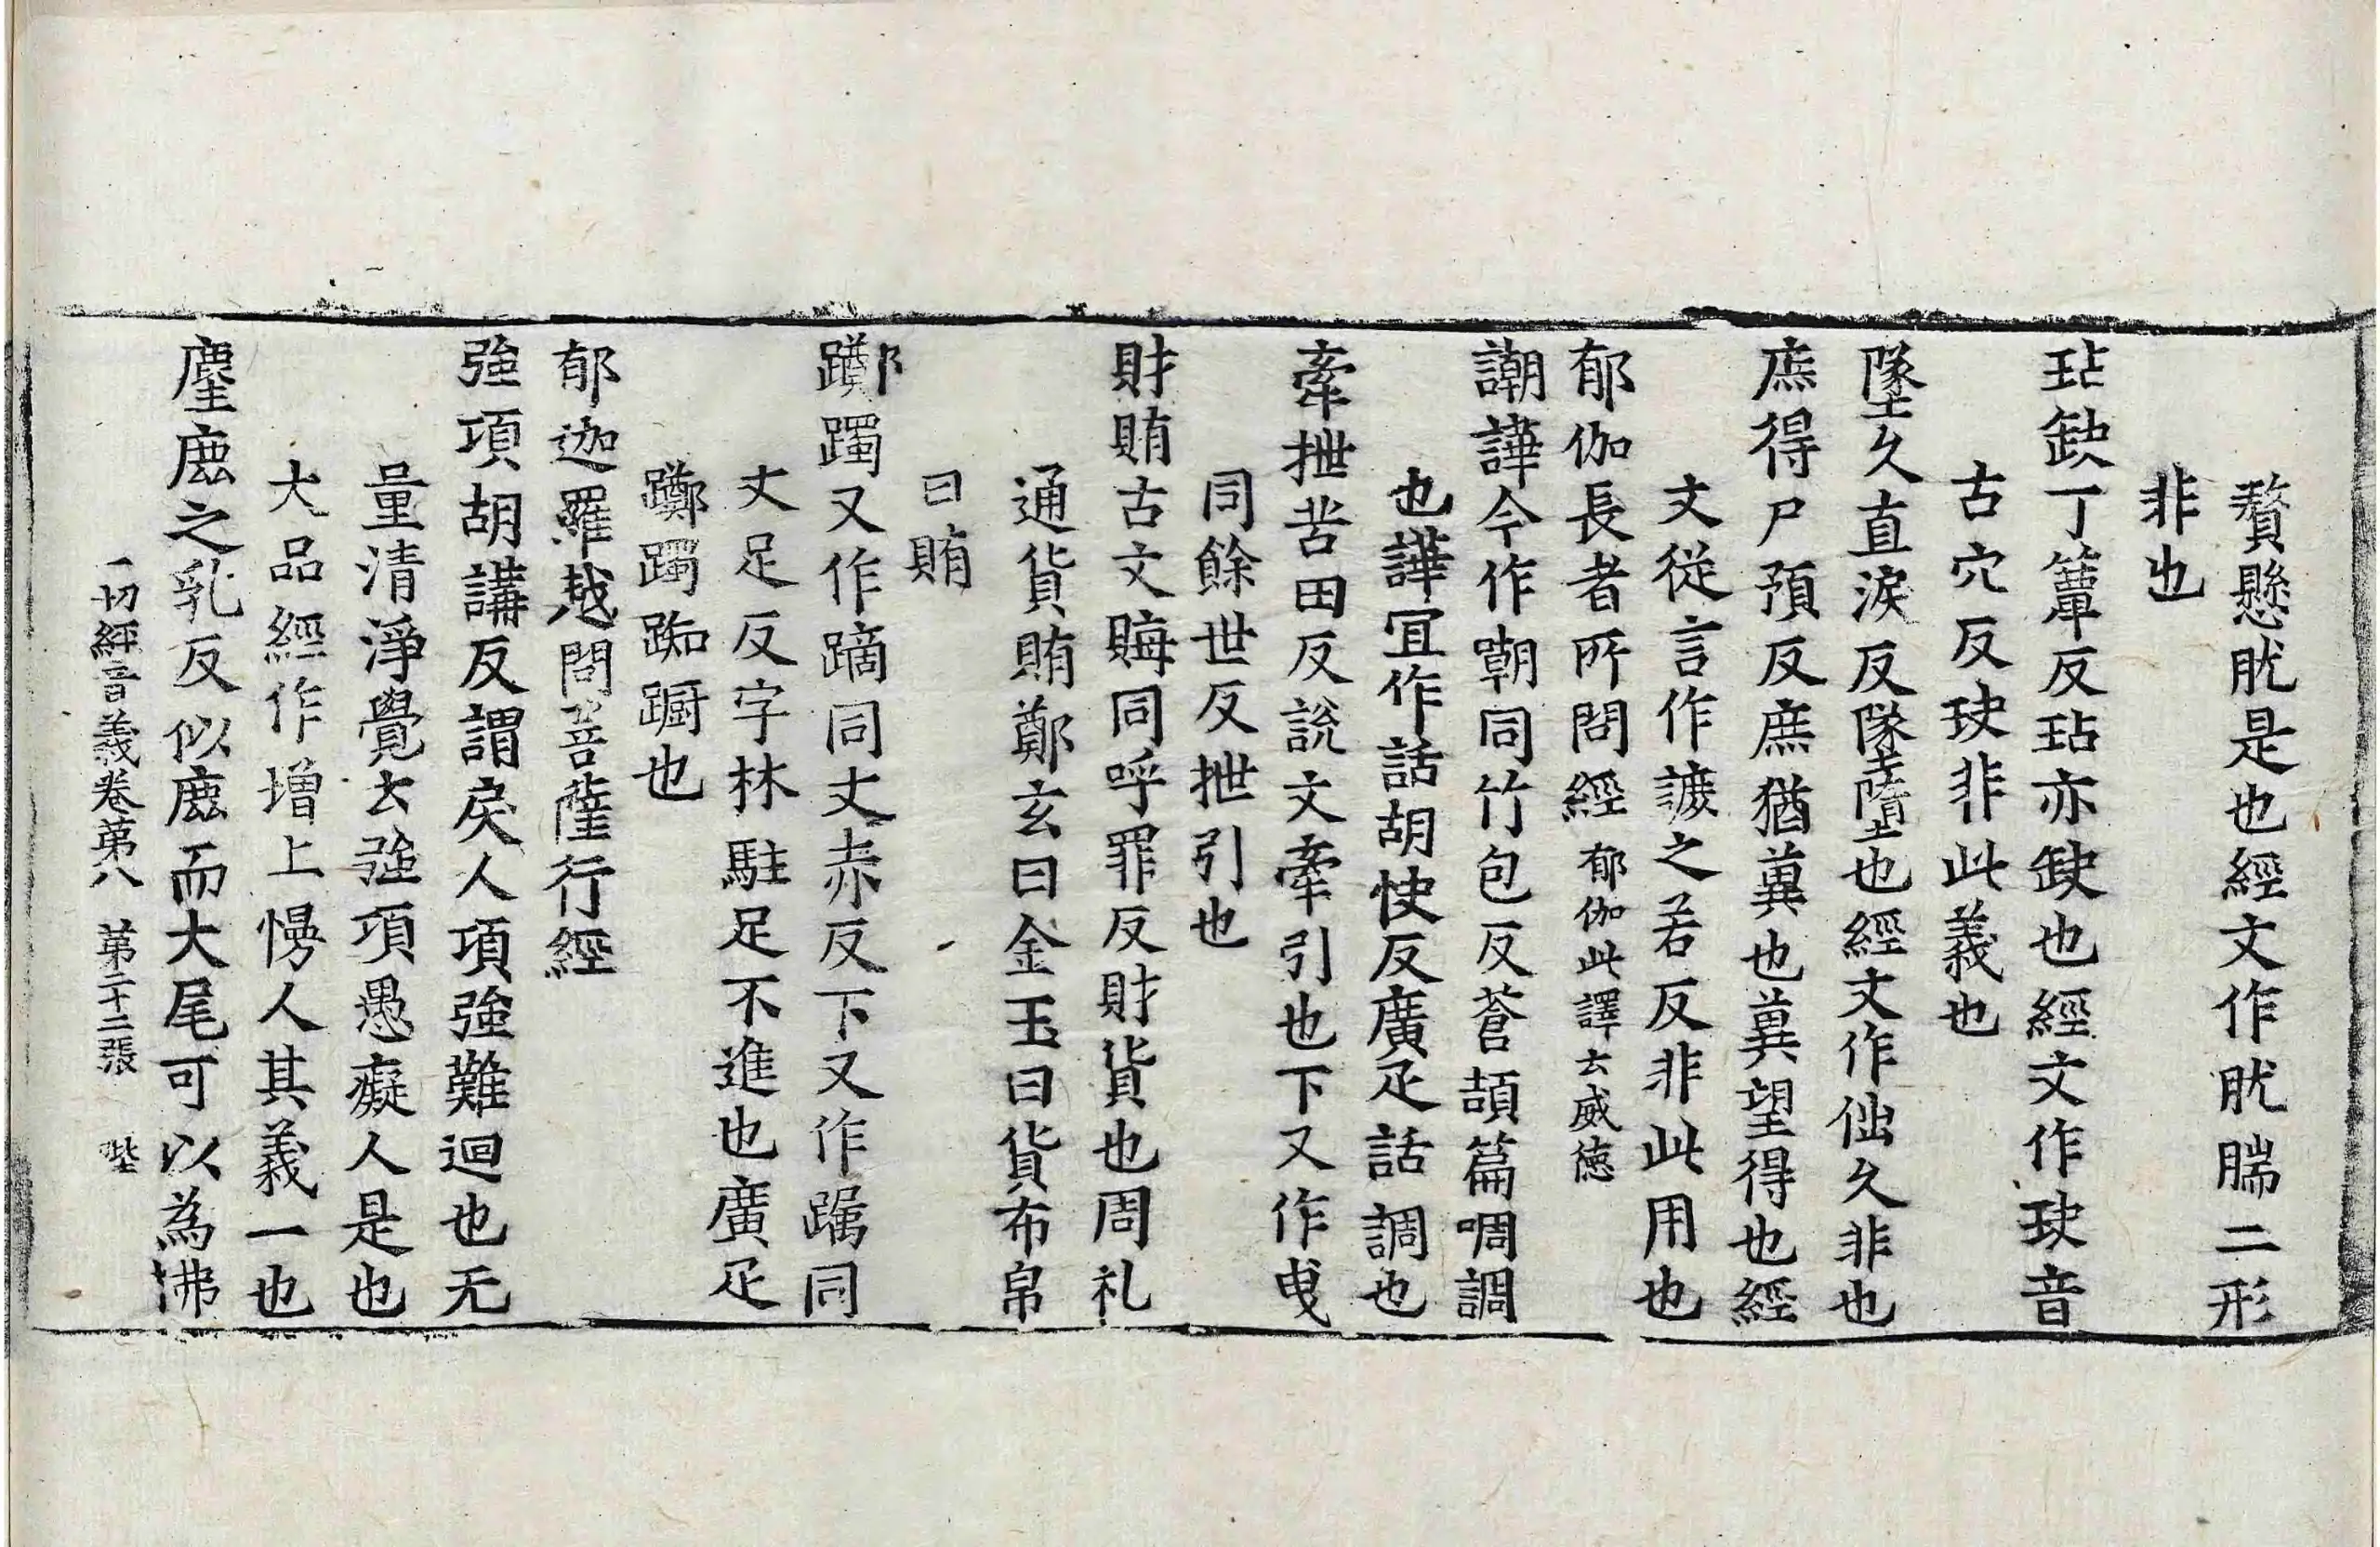 贅懸肬是也經文作肬腨二形
非也
玷缺丁簟反玷亦缺也經文作玦音
古穴反玦非此義也
墜久直淚反墜墮也經文作㑁久非也
庶得尸預反庶猶冀也冀望得也經
文從言作謶之若反非此用也
郁伽長者所問經郁伽此譯云威德
謿譁今作嘲同竹包反蒼頡篇啁調
也譁冝作話胡快反廣疋話調也
牽抴苦田反說文牽引也下又作曳
同餘世反抴引也
財賄古文䀲同呼罪反財貨也周礼
通貨賄鄭玄曰金玉曰貨布帛
曰賄
躑躅又作蹢同丈赤反下又作䠱同
丈足反字林駐足不進也廣疋
躑躅踟蹰也
郁迦羅越問菩薩行經
強項胡講反謂戾人項強難迴也无
量清淨覺云強項愚癡人是也
大品經作增上慢人其義一也
麈麈之乳反似鹿而大尾可以為拂
一切經音義卷第八 第二十二張 𡋯